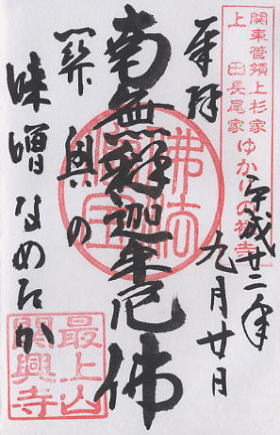 関東管領上杉家
上田長尾家
ゆかりの禅寺
奉拝
平成廿二年
九月廿日
南無釋迦牟尼佛
佛法
僧宝
関興の
味噌なめたか
最上山
関興寺